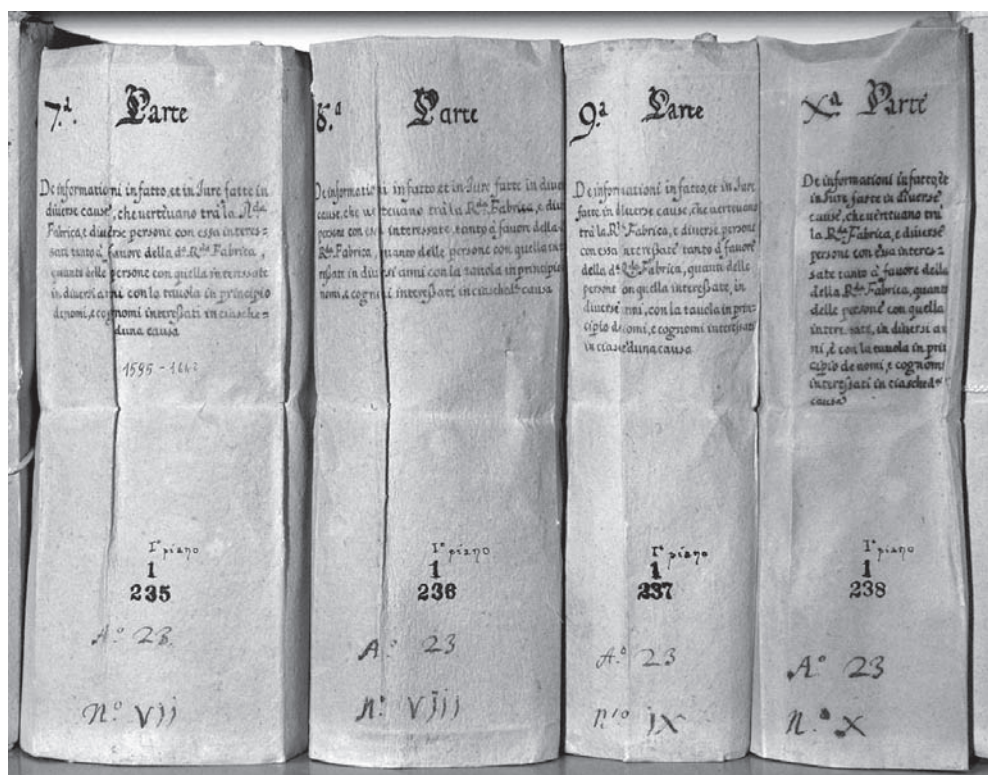 7.ª Parte
De informationi in fatto, et in Jure fatte in
diuerse cause, che uerteuano trà la R.da
Fabrica, e diuerse persone con essa interes=
sati tanto à fauore della d.ª R.da Fabrica,
quanto delle persone con quella interessate
in diuersi anni con la tauola in principio
de nomi, e cognomi interessati in ciasche=
duna causa
1595 -
I° piano
1
235
A.° 23.
N.° Vjj
8.ª Parte
De informationi in fatto, et in Jure fatte in diue
cause, che uerteuano trà la R.da Fabrica, e diu
persone con essa interessate tanto à fauore della
R.da Fabrica, quanto delle persone con quella in
ressati in diuersi anni con la tauola in principio
nomi, e cognomi interessati in ciasched.a causa
I° piano
1
236
A.° 23
N.° Vjjj
9.ª Parte
De informationi in fatto, et in Jure
fatte in diuerse cause, che uerteuano
trà la R.da Fabrica, e diuerse persone
con essa interessate tanto à fauore
della d.ª R.da Fabrica, quanti delle
persone con quella interessate, in
diuersi anni, con la tauola in prin=
cipio de nomi, e cognomi interessati
in ciascheduna causa
I° piano
1
237
A.° 23
N.° jX
X.ª Parte
De informationi in fatto, et
in Jure fatte in diuerse
cause, che uerteuano trà
la R.da Fabrica, e diuerse
persone con essa interes=
sate tanto à fauore della
della R.da Fabrica, quanti
delle persone con quella
interessate, in diuersi an
ni, è con la tauola in prin
cipio de nomi, e cognomi
interessati in ciasched.a
causa
I° piano
1
238
A.° 23
N.° X